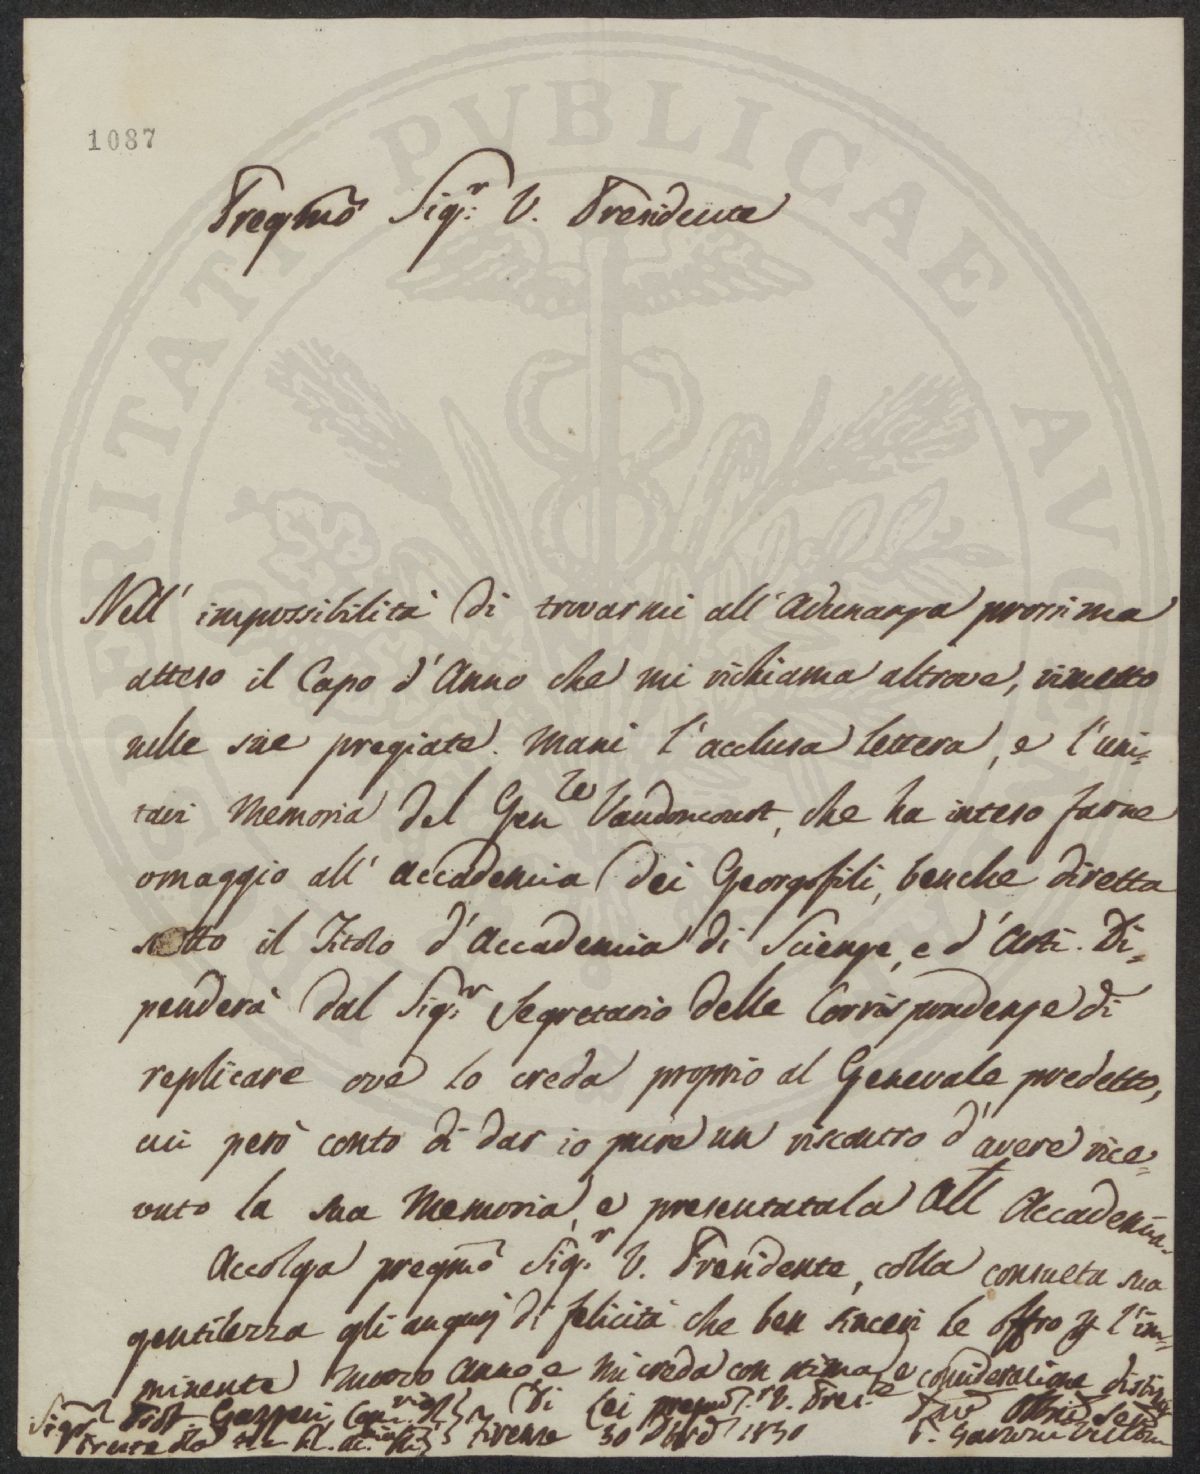 1087
PROSPERITATI PVBLICAE AVGENDAE
Pregmo Sigr: V. Presidente
Nell' impossibilità di trovarmi all' Adunanza prossima
atteso il Capo d'Anno che mi richiama altrove, rimetto
nelle sue pregiate mani l'acclusa lettera, e l'uni-
tavi Memoria del Genle Vaudoncourt, che ha inteso farne
omaggio all' Accademia dei Georgofili, benche diretta
sotto il Titolo d'Accademia di Scienze, e d'Arti. Di-
penderà dal Sigr: Segretario delle Corrispondenze di
replicare ove lo creda proprio al Generale predetto,
cui però conto di dar io pure un riscontro d'avere rice-
vuto la sua Memoria, e presentatala all' Accademia.
Accolga pregmo Sigr: V. Presidente, colla consueta sua
gentilezza gli augurj di felicità che ben sinceri le offro p l'im-
minente nuovo Anno, e mi creda con stima, e considerazione distinta
Di Lei pregmo. Sr. V. Pres.te Dmo Obbmo Serv
Sigr Prof. Gazzeri
Firenze 30 Dbre 1830